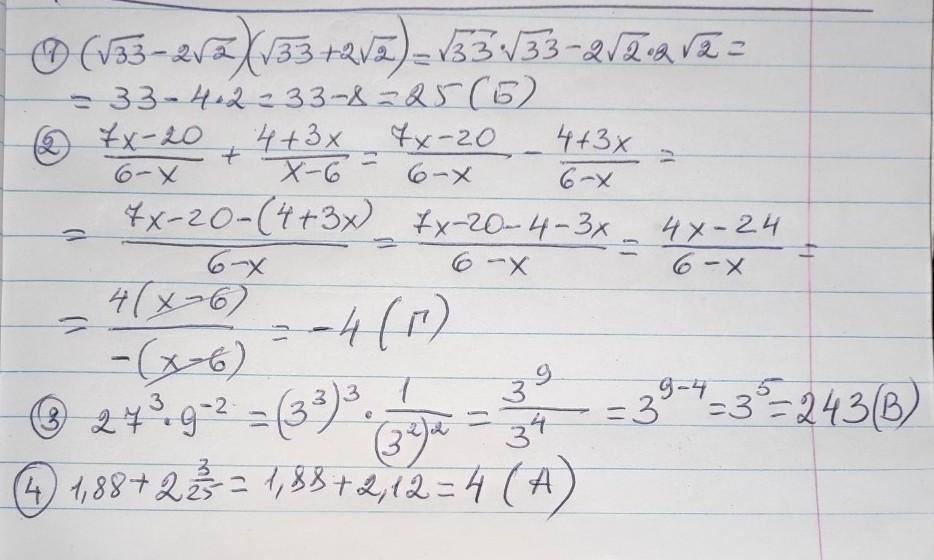 ① (√33 - 2√2)(√33 + 2√2) = √33·√33 - 2√2·2√2 =
= 33 - 4·2 = 33 - 8 = 25 (Б)
② (7x-20)/(6-x) + (4+3x)/(x-6) = (7x-20)/(6-x) - (4+3x)/(6-x) =
= (7x-20-(4+3x))/(6-x) = (7x-20-4-3x)/(6-x) = (4x-24)/(6-x) =
= 4(x-6)/-(x-6) = -4 (Г)
③ 27³·9⁻² = (3³)³·1/(3²)² = 3⁹/3⁴ = 3⁹⁻⁴ = 3⁵ = 243 (В)
④ 1,88 + 2 3/25 = 1,88 + 2,12 = 4 (А)